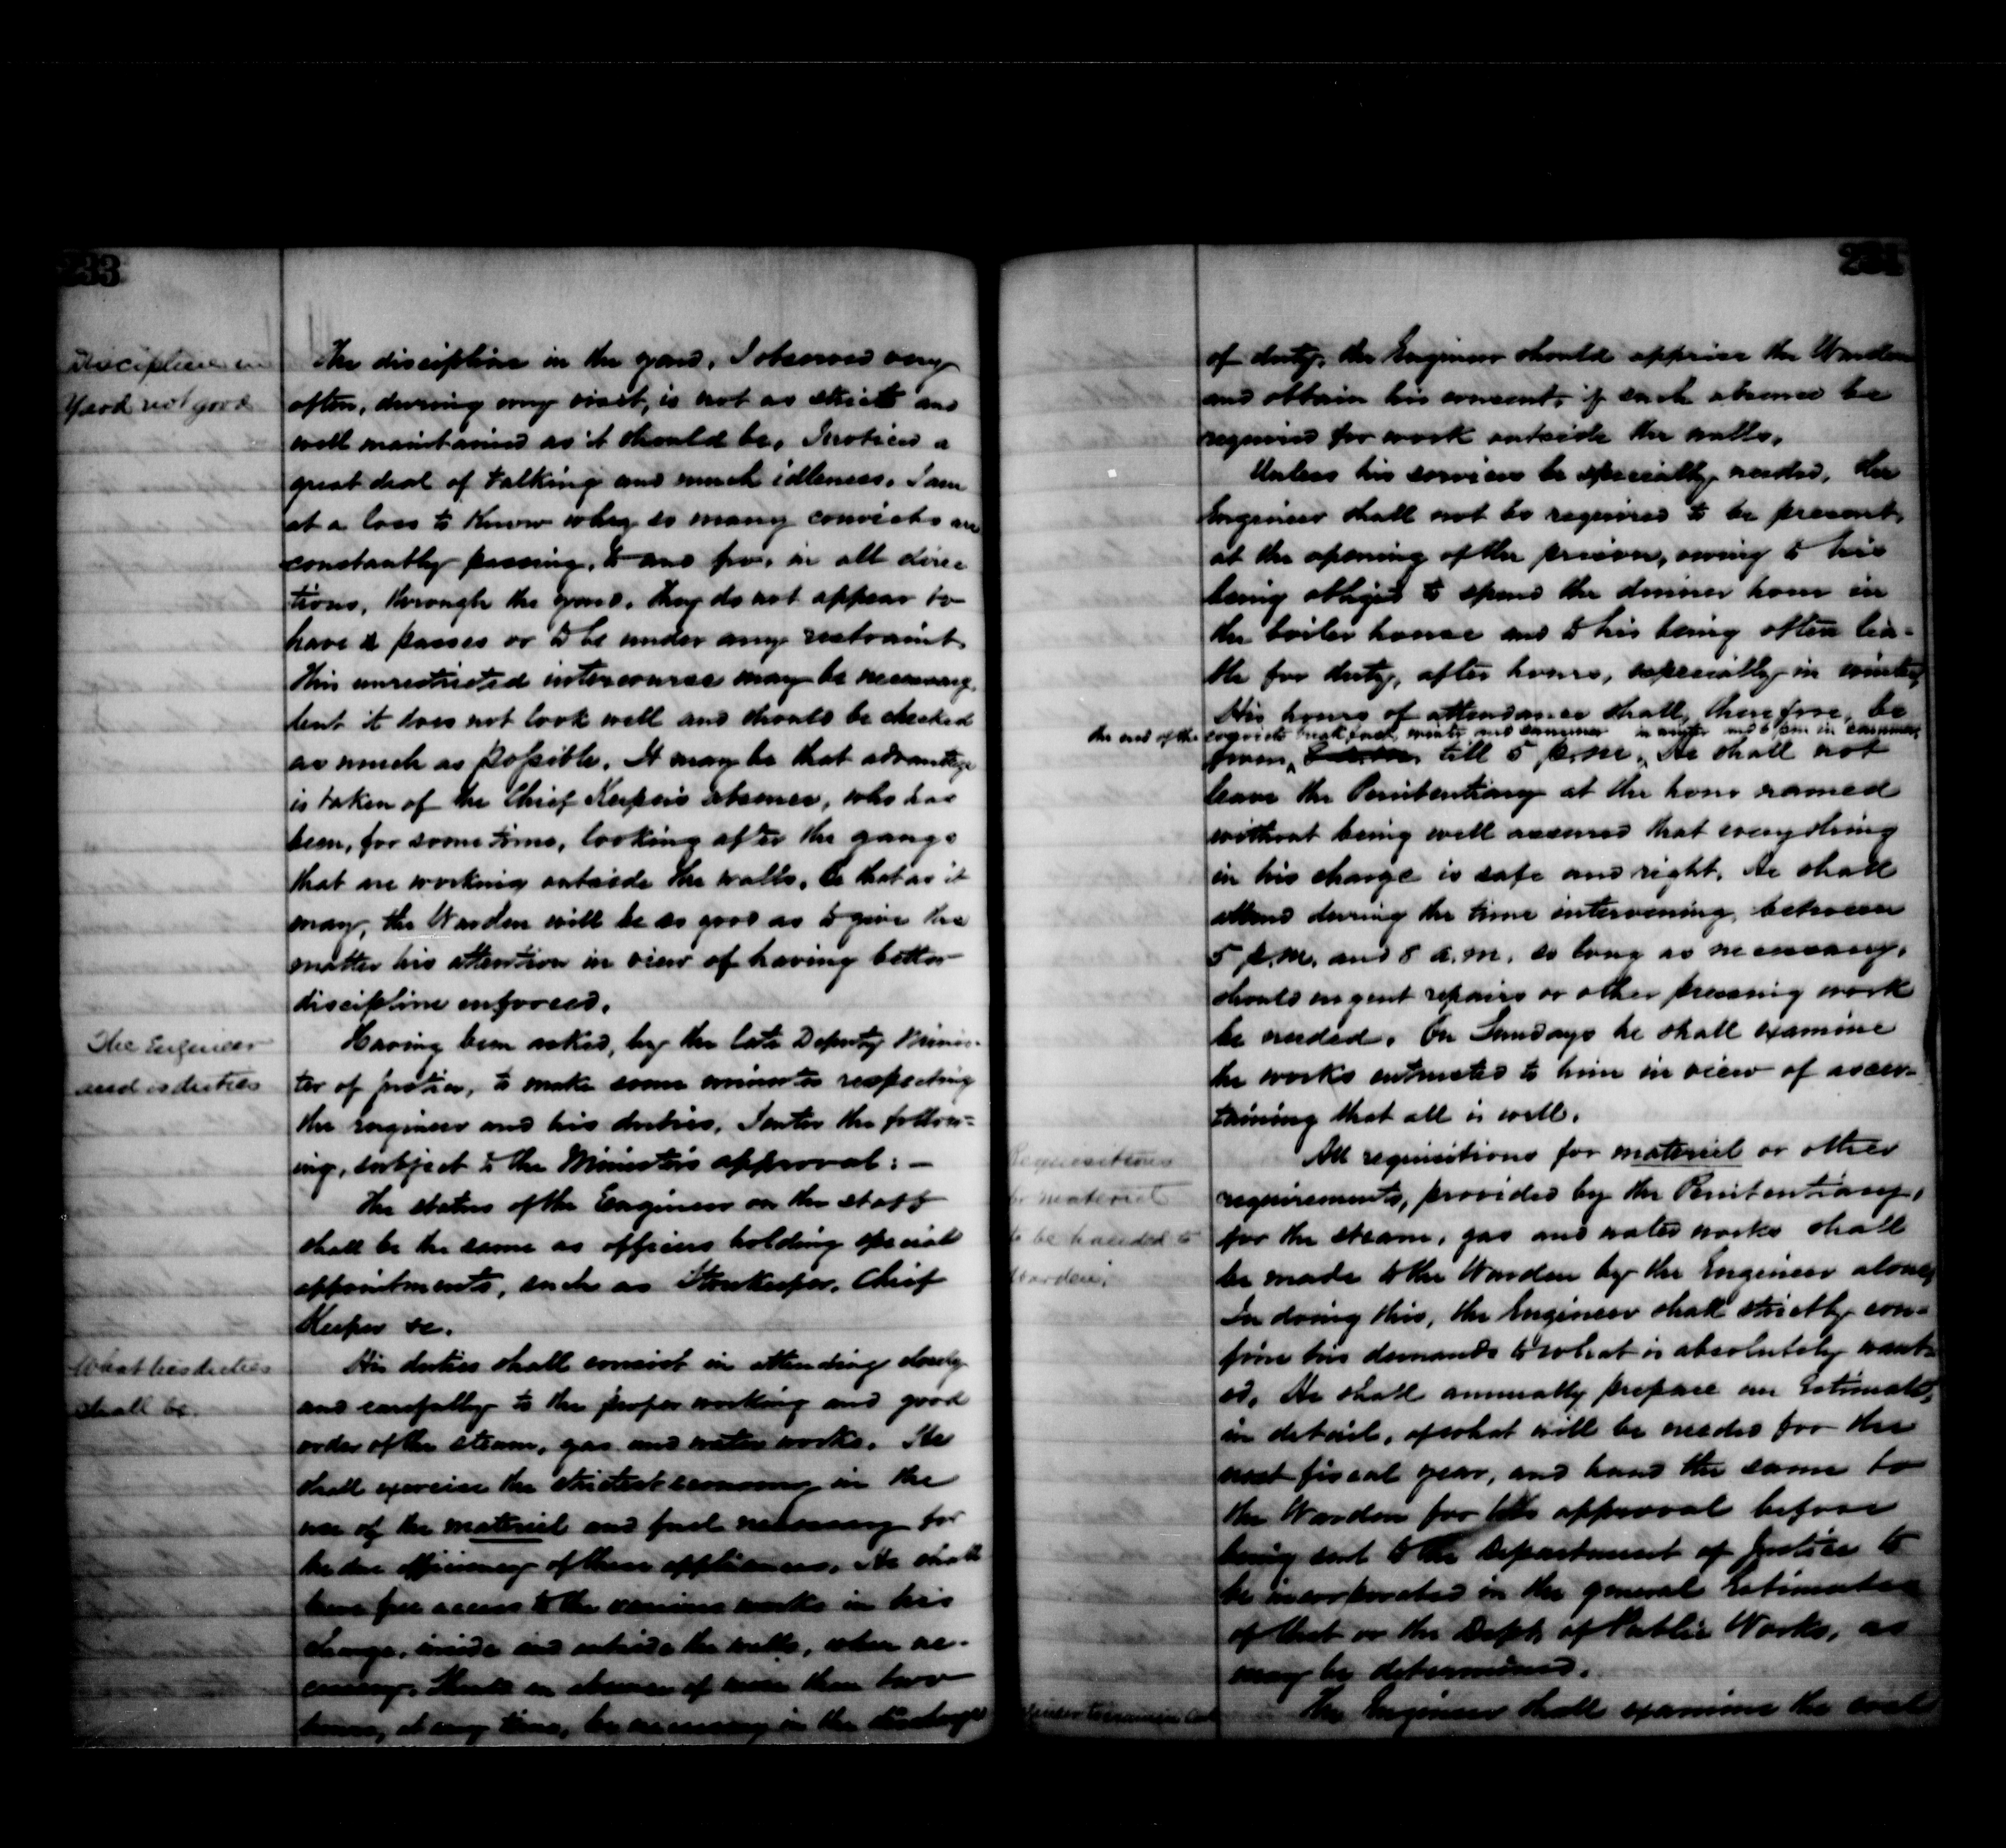 233
Discipline in
Yard not good
The discipline in the yard, I observed very
often, during my visit, is not as strict and
well maintained as it should be. I noticed a
great deal of talking and much idleness. I am
at a loss to know why so many convicts are
constantly passing, to and fro, in all direc
tions, through the yard. They do not appear to
have passes or to be under any restraint.
This unrestricted intercourse may be necessary,
but it does not look well and should be checked
as much as possible. It may be that advantage
is taken of the Chief Keeper's absence, who has
been, for some time, looking after the gangs
that are working outside the walls. Be that as it
may, the Warden will be so good as to give the
matter his attention in view of having better
discipline enforced.
The Engineer
and is duties
Having been asked, by the late Deputy Minis-
ter of Justice, to make some minutes respecting
the engineer and his duties, I enter the follow=
ing, subject to the Minister's approval: —
The status of the Engineer on the staff
shall be the same as officers holding special
appointments, such as Storekeeper, Chief
Keeper &c.
What his duties
shall be.
His duties shall consist in attending closely
and carefully to the proper working and good
order of the steam, gas and water works. He
shall exercise the strictest economy in the
use of the materiel and fuel necessary for
the due efficiency of these appliances. He shall
have free access to the various works in his
charge, inside and outside the walls, when ne-
cessary. Should an absence of more than two
hours, at any time, be necessary in the discharge
234
of duty, the Engineer should apprise the Warden
and obtain his consent, if such absence be
required for work outside the walls.
Unless his services be specially needed, the
Engineer shall not be required to be present,
at the opening of the prison, owing to his
being obliged to spend the dinner hour in
the boiler house and to his being often lia-
ble for duty, after hours, especially in winter.
His hours of attendance shall, therefore, be
the end of the convicts breakfast, winter and summer in winter and 6 pm in summer
from, till 5 p.m. He shall not
leave the Penitentiary at the hour named
without being well assured that everything
in his charge is safe and right. He shall
attend during the time intervening, between
5 p.m. and 8 a.m. so long as necessary,
should urgent repairs or other pressing work
be needed. On Sundays he shall examine
the works entrusted to him in view of ascer-
taining that all is well.
Requisitions
for materiel
to be handed to
Warden.
All requisitions for materiel or other
requirements, provided by the Penitentiary,
for the steam, gas and water works shall
be made to the Warden by the Engineer alone.
In doing this, the Engineer shall strictly con-
fine his demands to what is absolutely want-
ed. He shall annually prepare an Estimate,
in detail, of what will be needed for the
next fiscal year, and hand the same to
the Warden for his approval before
being sent to the Department of Justice to
be incorporated in the general Estimates
of that or the Dept. of Public Works, as
may be determined.
The Engineer shall examine the coal